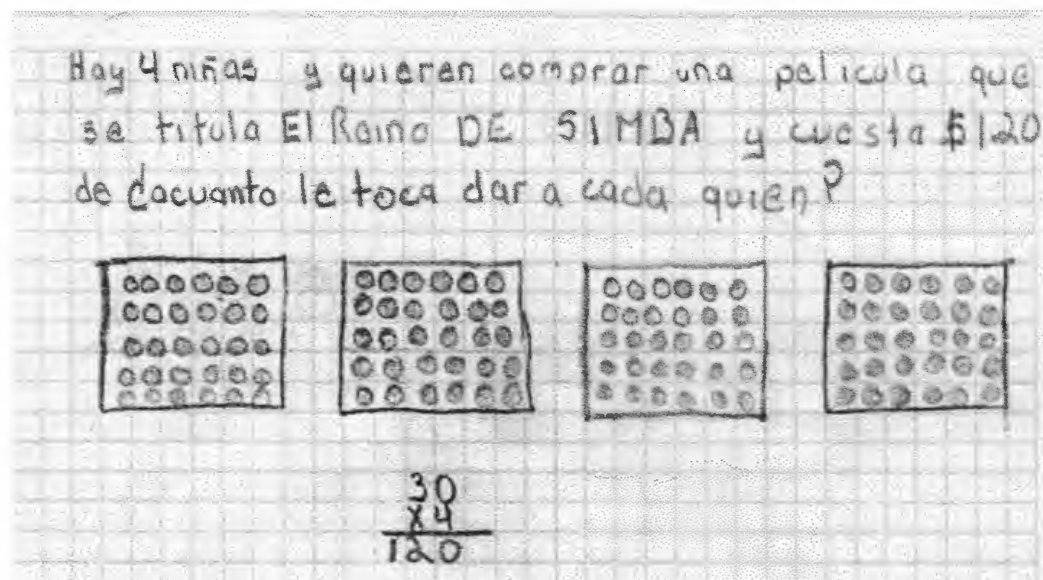 Hay 4 niñas y quieren comprar una pelicula que
se titula El Reino DE SIMBA y cuesta $120
de dacuanto le toca dar a cada quien?
30
x4
120